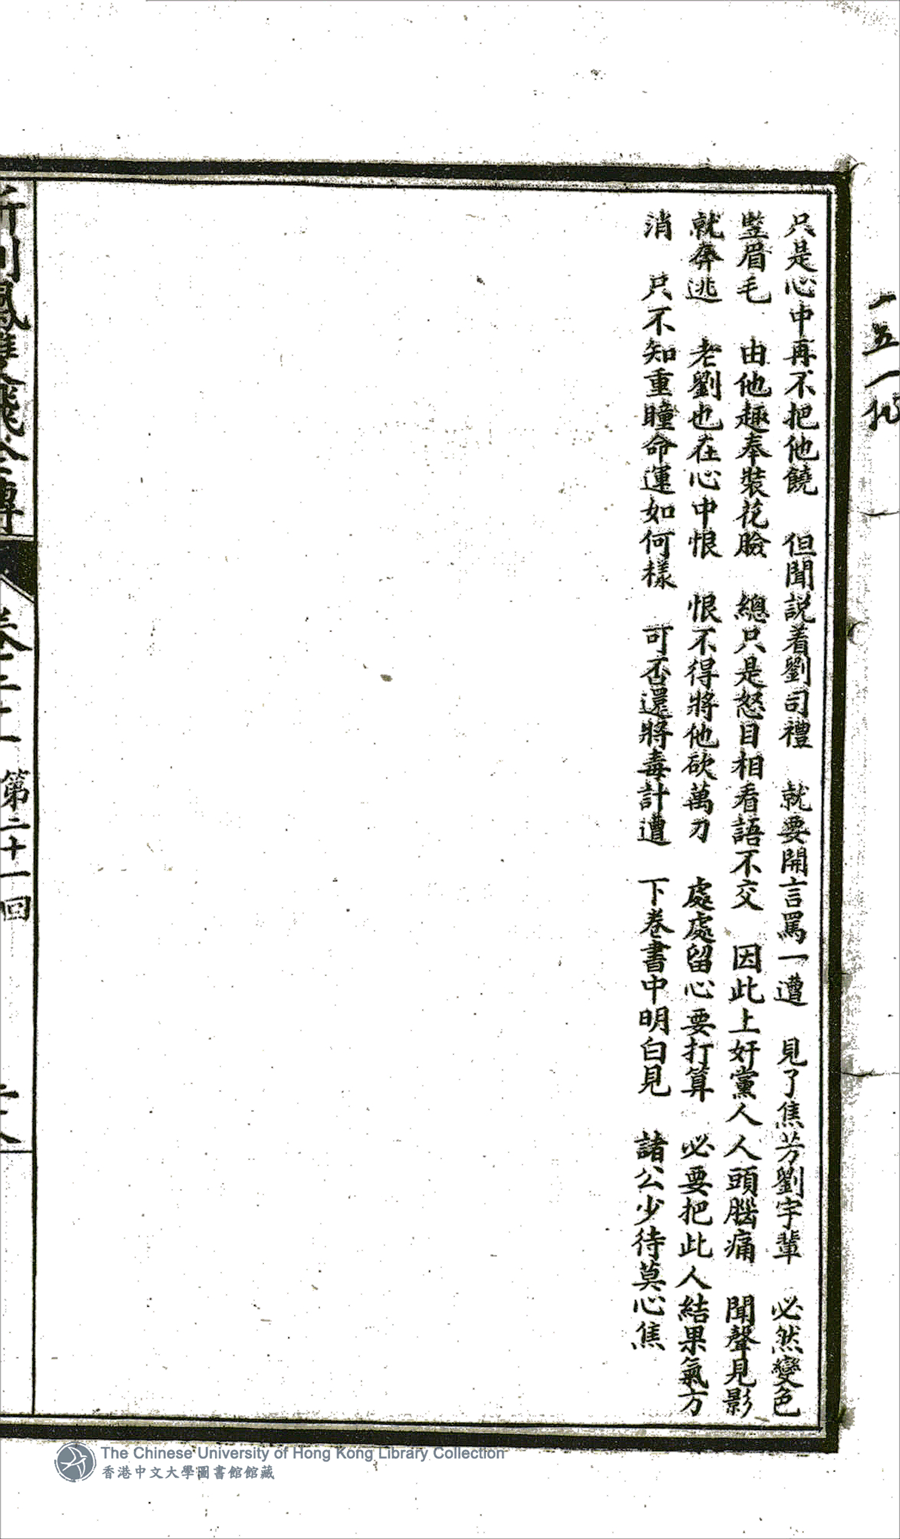 只是心中再不把他饒　但聞説着劉司禮　就要開言罵一遭　見了焦芳劉宇輩　必然變色
豎眉毛　由他趣奉裝花臉　總只是怒目相看語不交　因此上奸黨人人頭腦痛　聞聲見影
就奔逃　老劉也在心中恨　恨不得將他砍萬刀　處處留心要打算　必要把此人結果氣方
消　只不知重瞳命運如何樣　可否還將毒計遭　下卷書中明白見　諸公少待莫心焦
新刊鳳雙飛全傳　卷二十一　第二十一回
The Chinese University of Hong Kong Library Collection
香港中文大學圖書館館藏